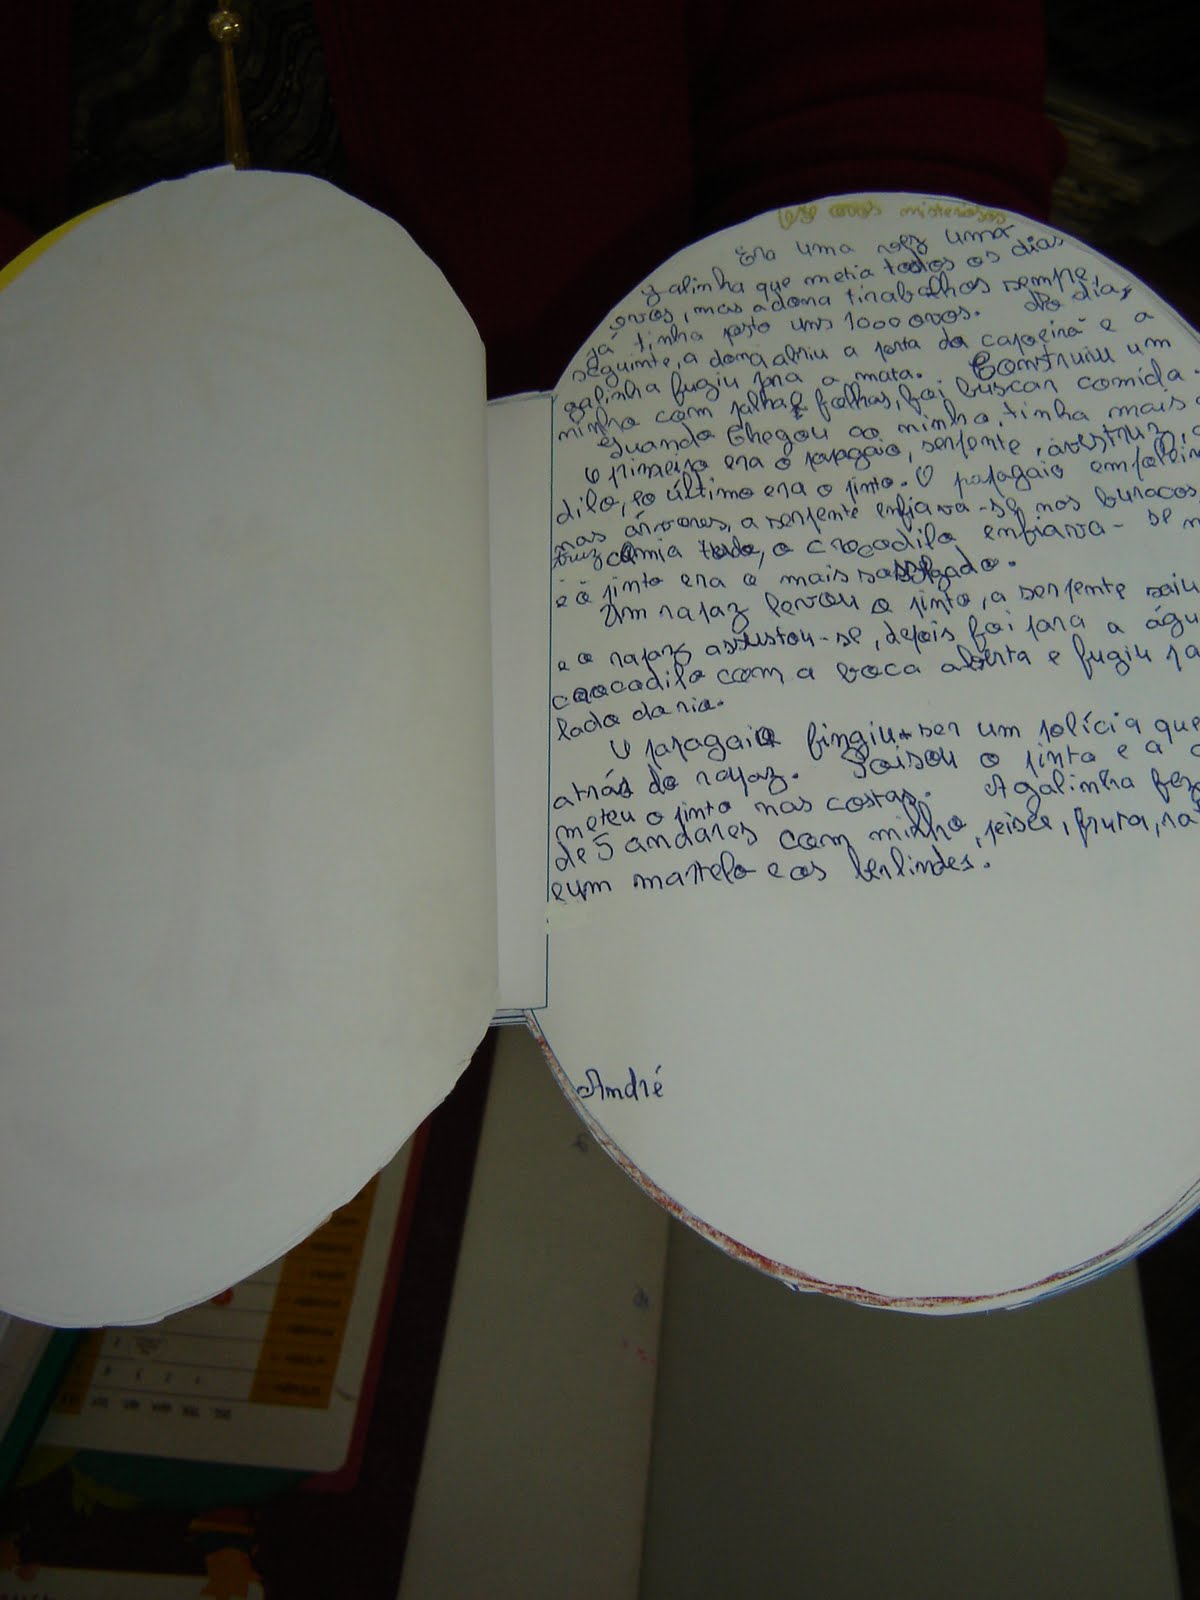 ovos misteriosos
Era uma vez uma
galinha que metia todos os dias
ovos, mas a dona tirab olhos sempre,
já tinha posto uns 1000 ovos. No dia
seguinte, a dona abriu a porta da capoeira e a
galinha fugiu para a mata. Construiu um
ninho com palha e folhas, foi buscar comida.
Quando chegou ao ninho, tinha mais
O primeiro era o papagaio, serpente, avestruz,
dilo, e o último era o pinto. O papagaio
nas árvores, a serpente enfiava-se nos buracos
truz comia tudo, o crocodilo enfiava-se
e o pinto era o mais
Um rapaz levou o pinto, a serpente saiu
e o rapaz assustou-se, depois foi para a água
crocodilo com a boca aberta e fugiu
lado do rio.
O papagaio fingiu ser um polícia que
atrás do rapaz. Poisou o pinto e a
meteu o pinto nas costas. A galinha fez
de 5 andares com minho, peixe, fruta,
e um martelo e os berlindes.
André